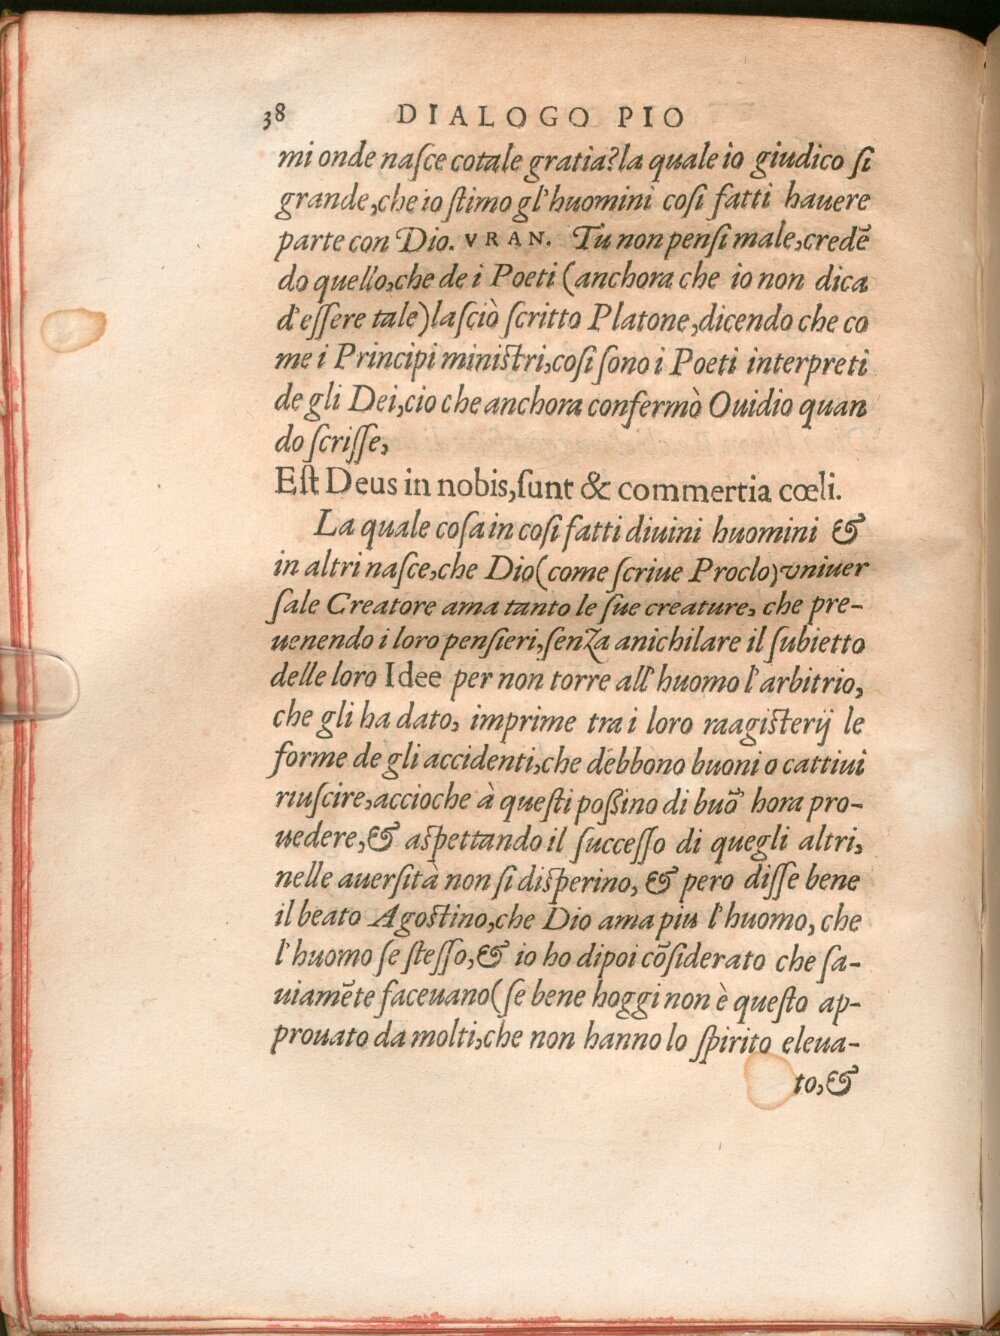 38 DIALOGO PIO
mi onde naſce cotale gratia? la quale io giudico ſi
grande, che io ſtimo gl'huomini coſi fatti hauere
parte con Dio. VRAN. Tu non penſi male, credē
do quello, che de i Poeti (anchora che io non dica
d'eſſere tale) laſciò ſcritto Platone, dicendo che co
me i Principi miniſtri, coſi ſono i Poeti interpreti
de gli Dei, cio che anchora confermò Ouidio quan
do ſcriſſe,
Eſt Deus in nobis, ſunt & commertia cœli.
La quale coſa in coſi fatti diuini huomini &
in altri naſce, che Dio (come ſcriue Proclo) vniuer
ſale Creatore ama tanto le ſue creature, che pre-
uenendo i loro penſieri, ſenza anichilare il ſubietto
delle loro Idee per non torre all'huomo l'arbitrio,
che gli ha dato, imprime tra i loro raagiſterij le
forme de gli accidenti, che debbono buoni o cattiui
riuſcire, accioche à queſti poßino di buō hora pro-
uedere, & aſpettando il ſucceſſo di quegli altri,
nelle auerſità non ſi diſperino, & pero diſſe bene
il beato Agoſtino, che Dio ama piu l'huomo, che
l'huomo ſe ſteſſo, & io ho dipoi cōſiderato che ſa-
uiamēte faceuano (ſe bene hoggi non è queſto ap-
prouato da molti, che non hanno lo ſpirito eleua-
to, &